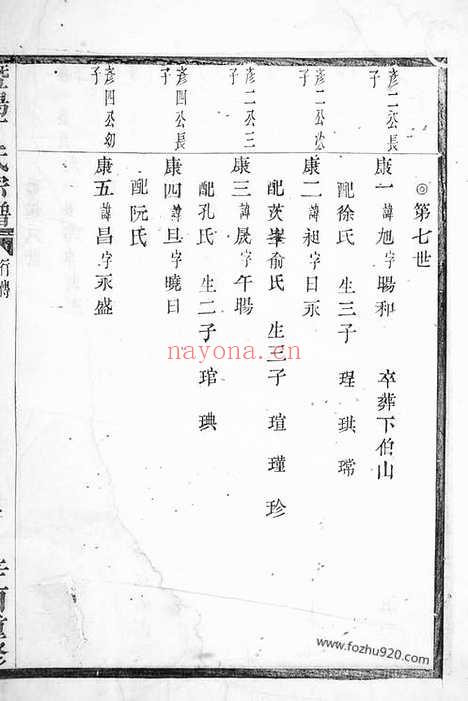 ◎第七世
彥二公長子
康一諱旭字暘和 卒葬下伯山
配徐氏 生三子 珵 珙 瑺
彥二公次子
康二諱昶字日永
配茨峯俞氏 生三子 瑄 瑾 珍
彥二公三子
康三諱晟字午暘
配孔氏 生二子 琯 琠
彥四公長子
康四諱旦字曉日
配阮氏
彥四公幼子
康五諱昌字永盛
氏宗譜
行傳
酉重修
nayona.cn
www.fozhu920.com